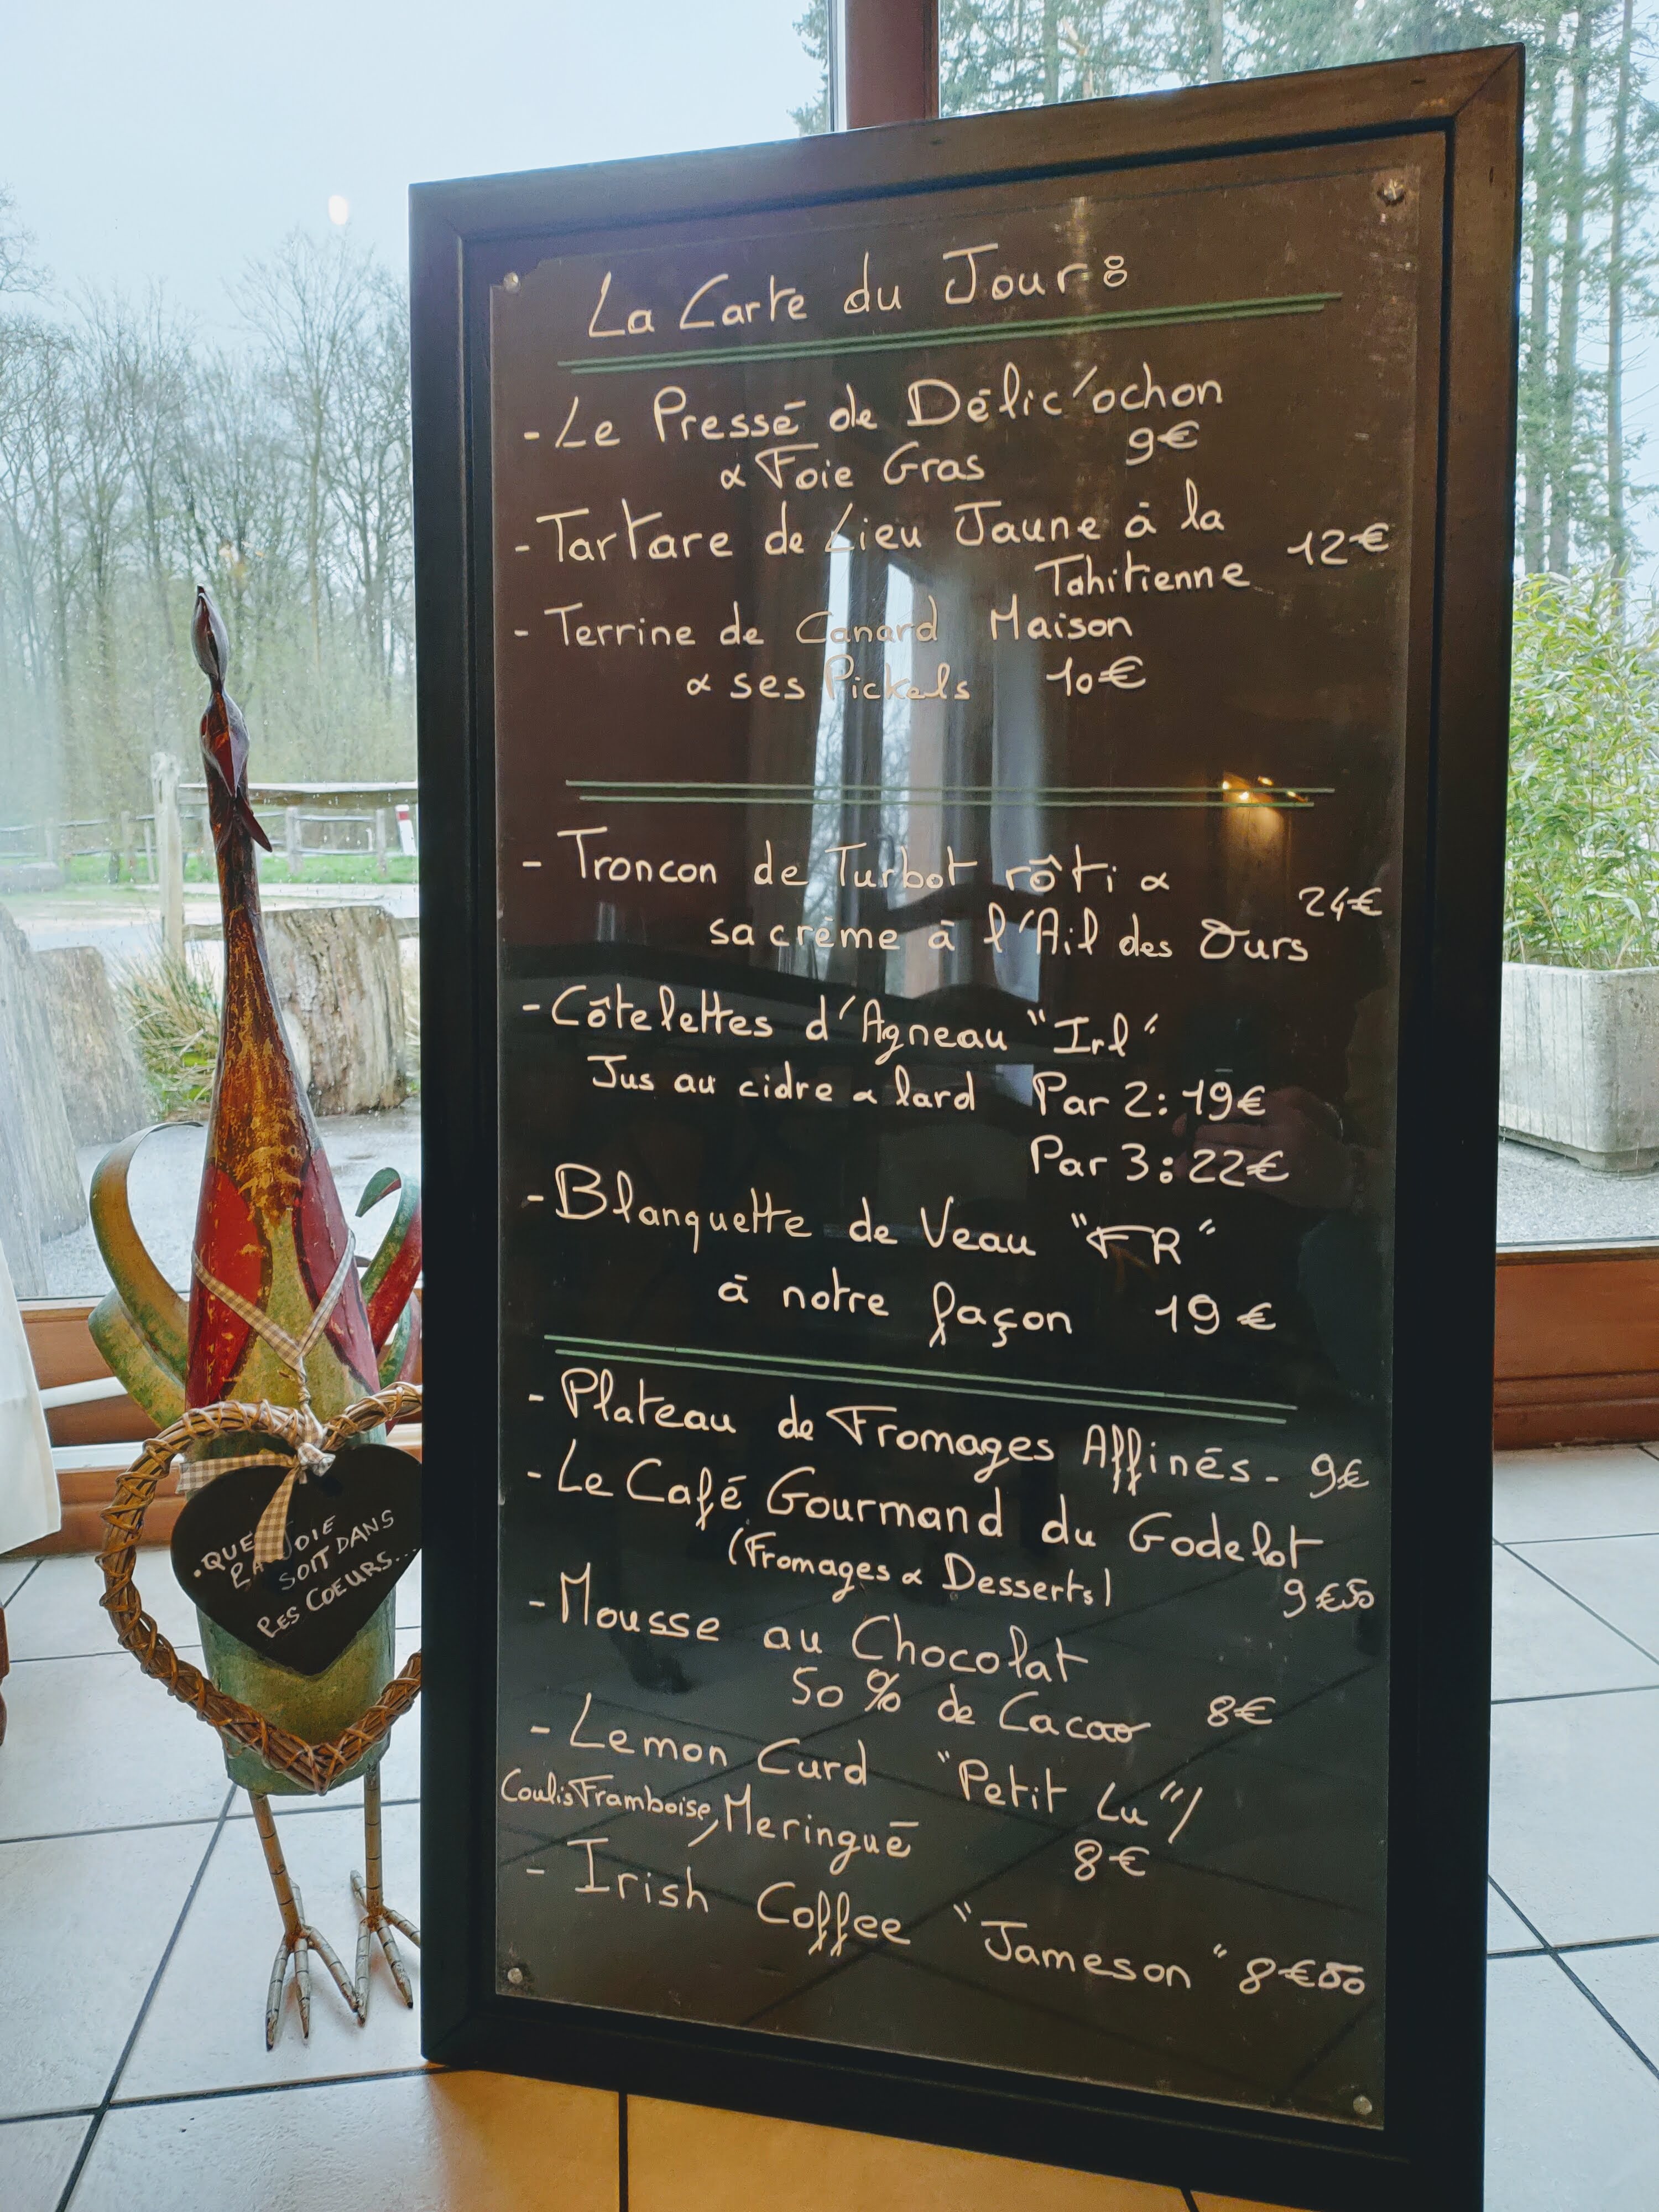 La Carte du Jour :
- Le Pressé de Délic'ochon
& Foie Gras 9€
- Tartare de Lieu Jaune à la
Tahitienne 12€
- Terrine de Canard Maison
& ses Pickels 10€
- Troncon de Turbot rôti &
sa crème à l'Ail des Ours 24€
- Côtelettes d'Agneau "Irl"
Jus au cidre & lard Par 2: 19€
Par 3: 22€
- Blanquette de Veau "FR"
à notre façon 19€
- Plateau de Fromages Affinés - 9€
- Le Café Gourmand du Godelot
(Fromages & Desserts) 9€50
- Mousse au Chocolat
50% de Cacao 8€
- Lemon Curd "Petit Lu"/
Coulis Framboise, Meringué 8€
- Irish Coffee "Jameson" 8€50
.QUE
LA JOIE
SOIT DANS
LES COEURS...